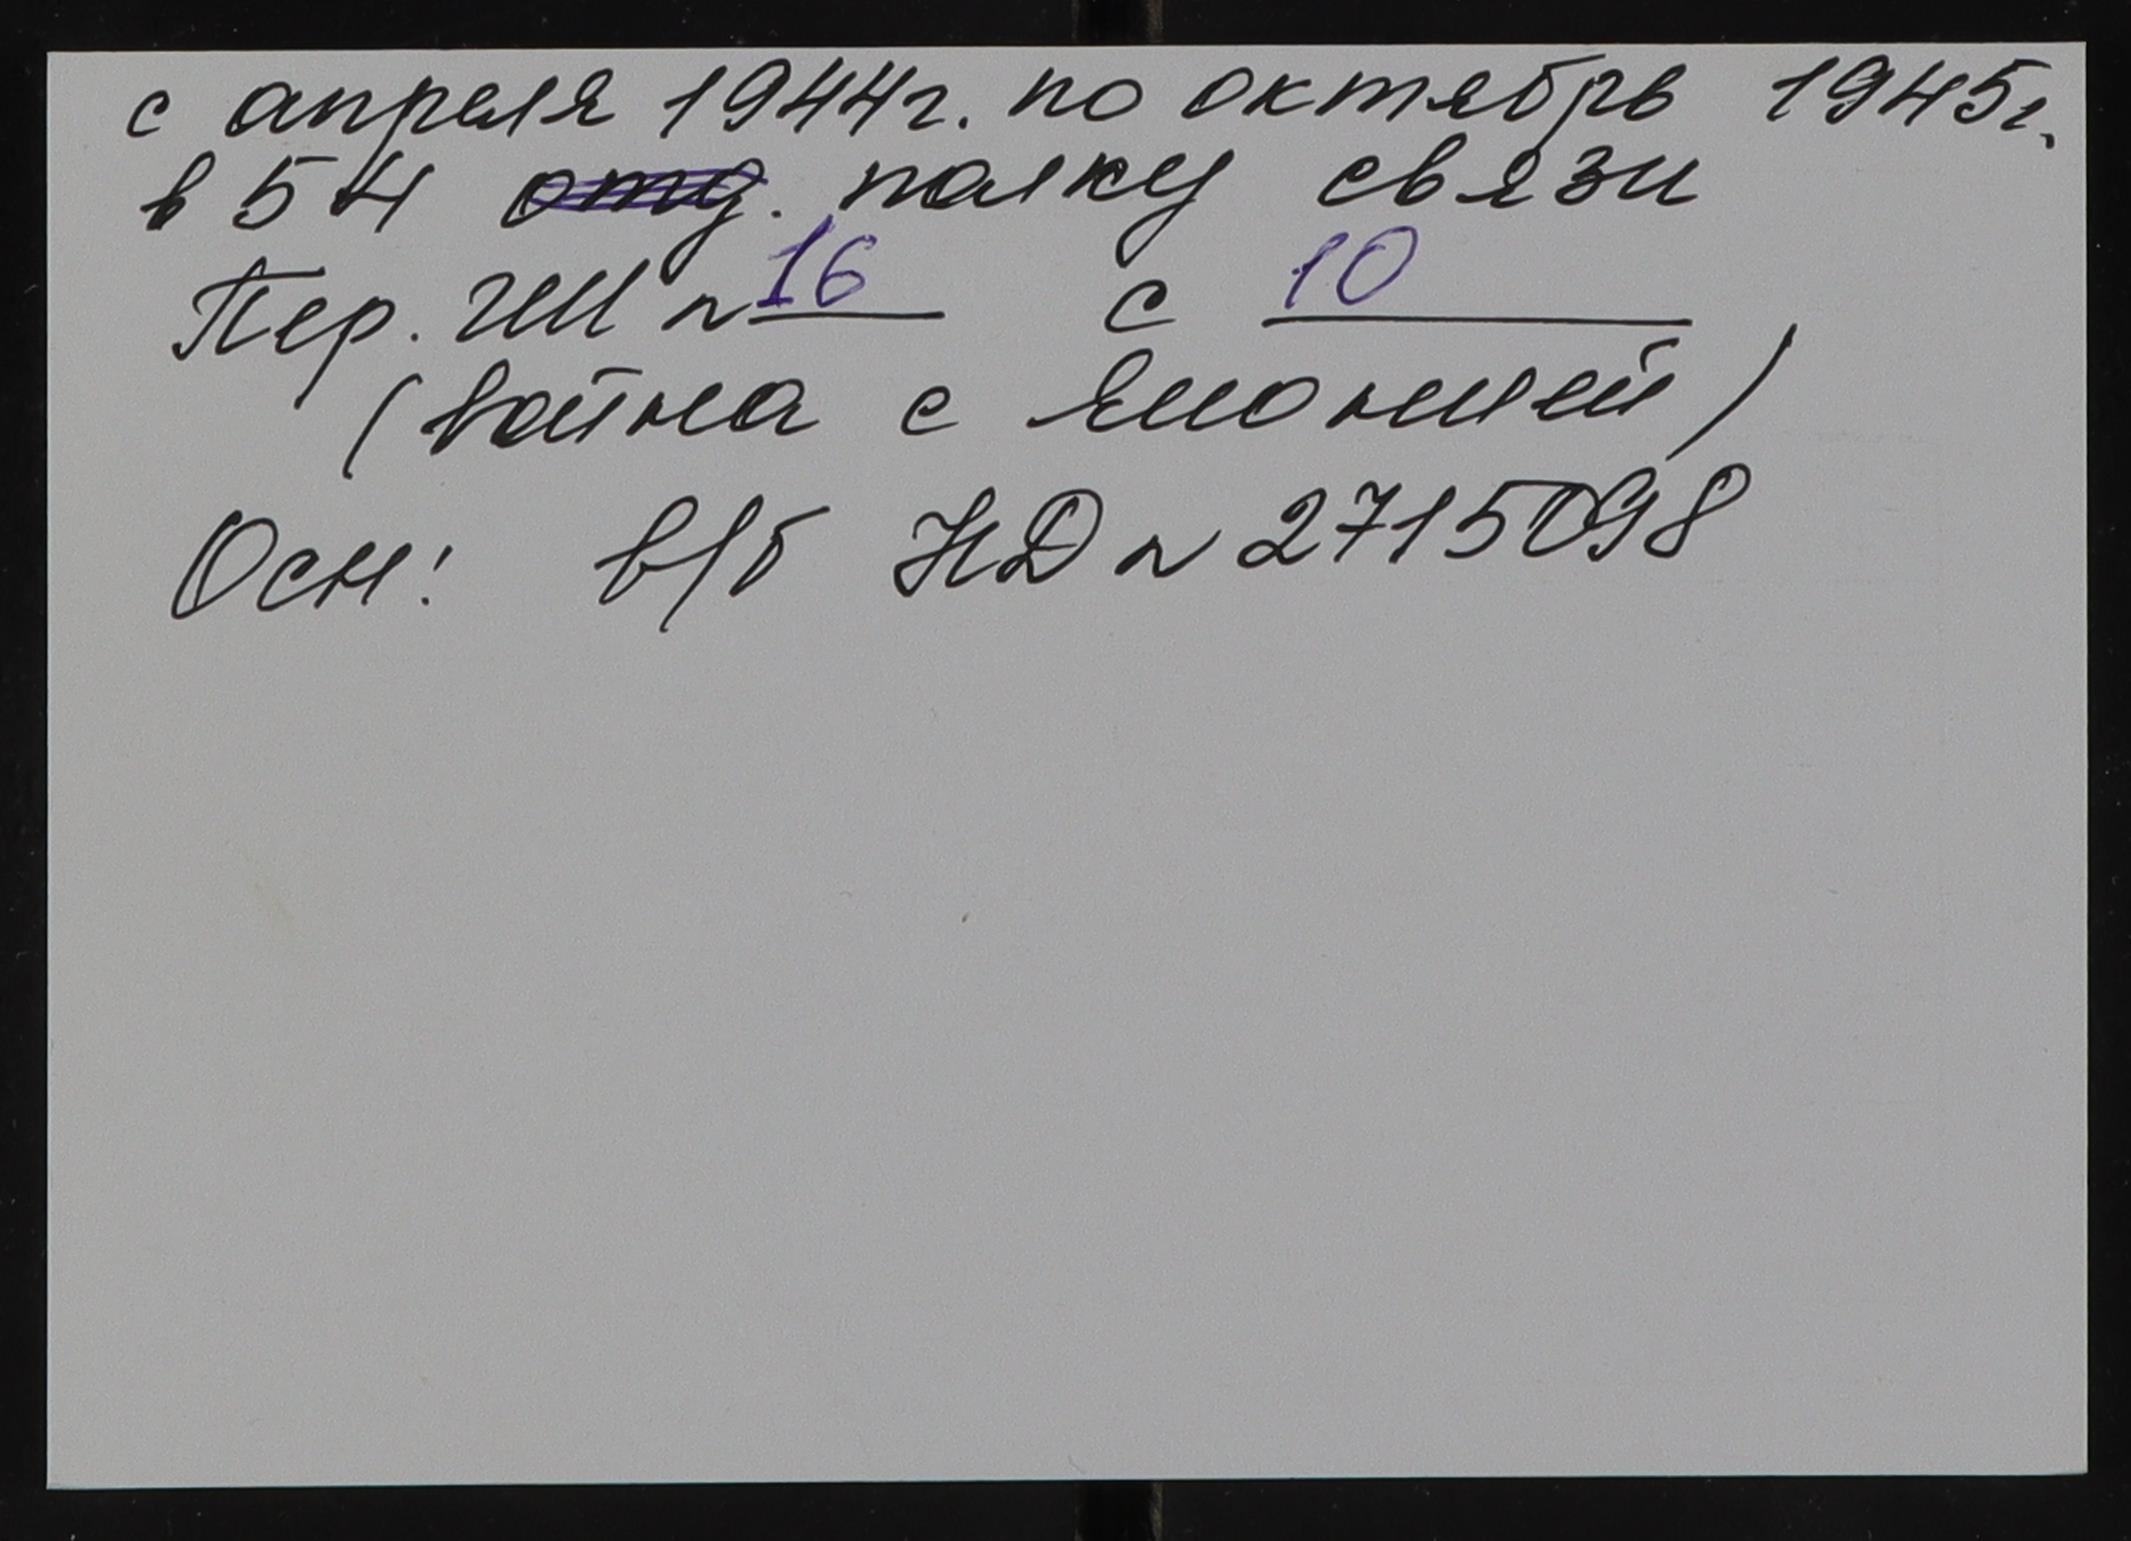 с апреля 1944г. по октябрь 1945г.
в 54 отд. полку связи
Пер. ГШ № 16 с 10
(война с Японией)
Осн: в/б НД № 2715098